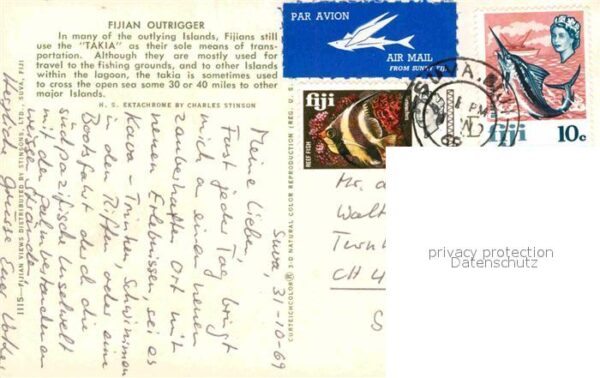 FIJIAN OUTRIGGER
In many of the outlying Islands, Fijians still
use the "TAKIA" as their sole means of trans-
portation. Although they are mostly used for
travel to the fishing grounds, and to other Islands
within the lagoon, the takia is sometimes used
to cross the open sea some 30 or 40 miles to other
major Islands.
H. S. EKTACHROME BY CHARLES STINSON
PAR AVION
AIR MAIL
FROM SUNNY FIJI
fiji
REEF FISH
SUVA, FIJI
PM
fiji 10c
Suva, 31-10-69
Meine Lieben,
Fast jeder Tag bringt
mich an einen neuen
zauberhaften Ort mit
neuen Erlebnissen, sei es
Kava-Trinken, Schwimmen
in den Riffen oder eine
Bootsfahrt durch die
südpazifische Inselwelt
mit den palmen
weisse Stränden.
Herzliche Grüsse Euer
CURTEICHCOLOR® 3-D NATURAL COLOR REPRODUCTION (REG. U. S.
S111—FIJIAN VIEWS DISTRIBUTED BY STINSONS, LTD., SUVA, FIJI
Walt
Turn
CH 4
S
privacy protection
Datenschutz